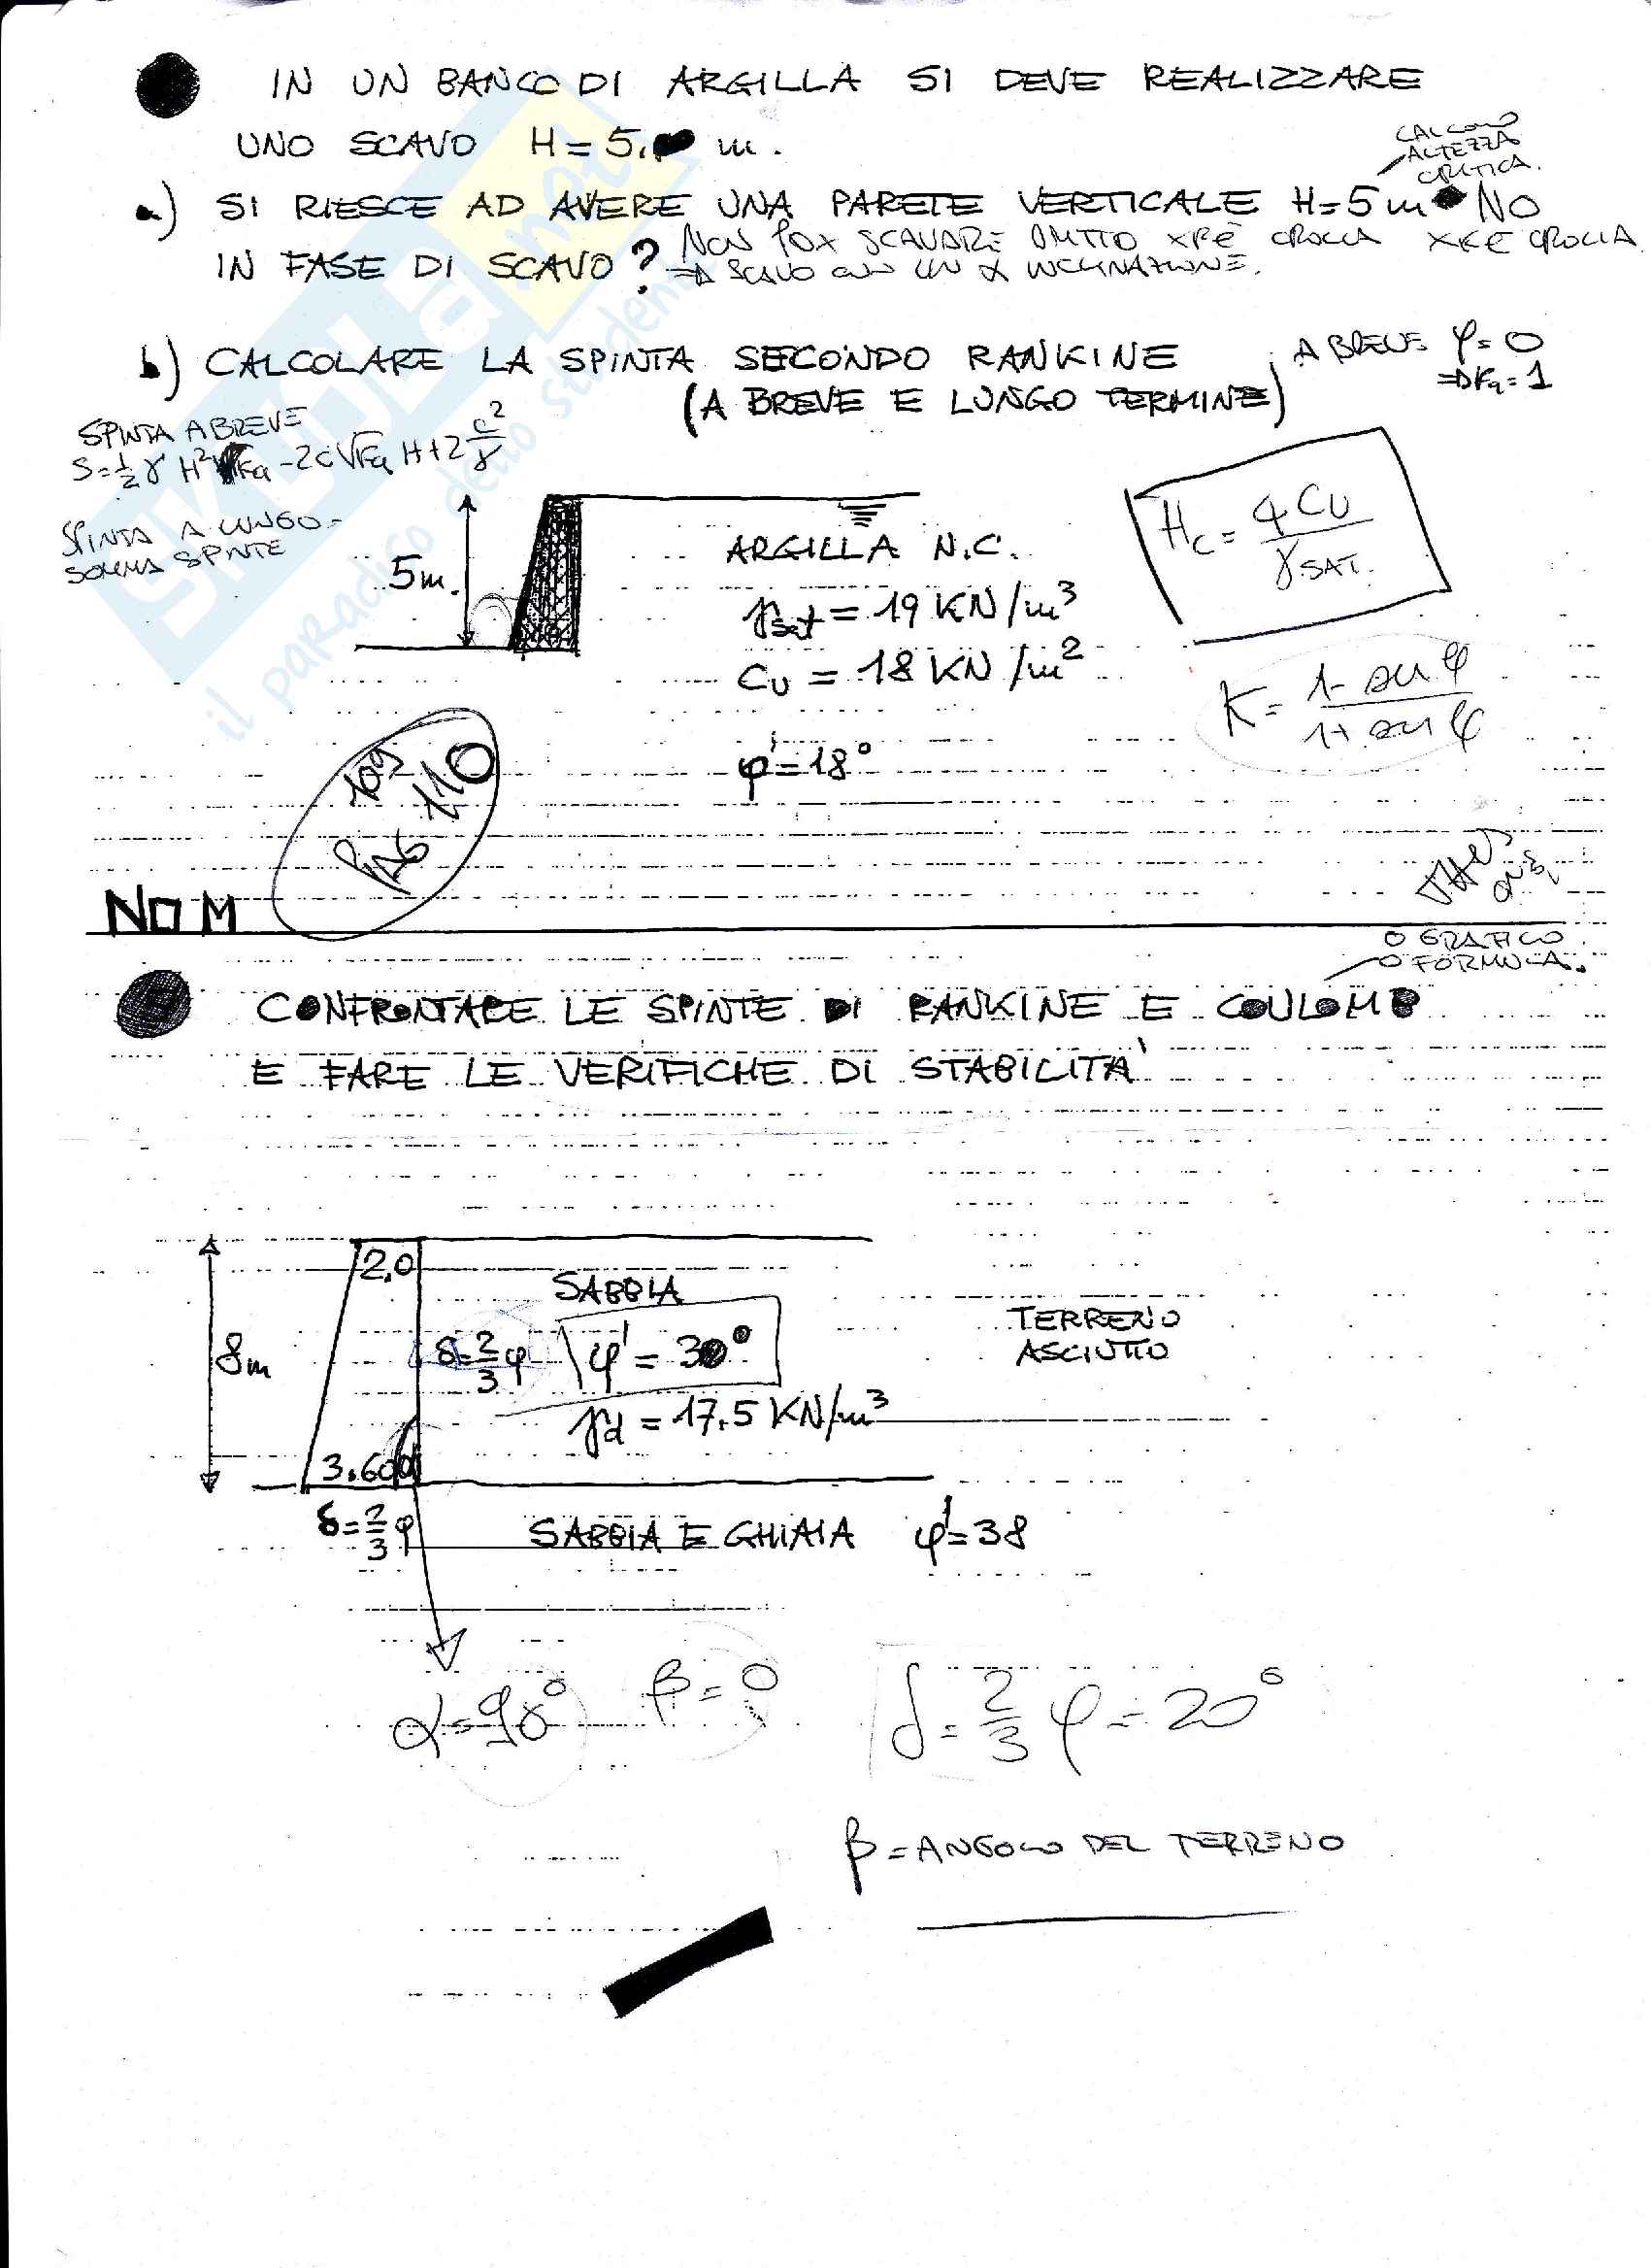 IN UN BANCO DI ARGILLA SI DEVE REALIZZARE
UNO SCAVO H = 5. m.
CALCOLO
ALTEZZA
CRITICA.
a) SI RIESCE AD AVERE UNA PARETE VERTICALE H=5m NO
NON POX SCAVARE DRITTO XRÈ CROLLA XKE CROLLA
IN FASE DI SCAVO?
⇒ SCAVO CON UN α INCLINAZIONE.
b) CALCOLARE LA SPINTA SECONDO RANKINE
(A BREVE E LUNGO TERMINE)
A BREVE φ=0
⇒ Ka=1
SPINTA A BREVE
S=1/2 γ H² Ka -2c√Ka H+2 c²/γ
SPINTA A LUNGO =
SOMMA SPINTE
5m.
ARGILLA N.C.
γsat = 19 KN/m³
cu = 18 KN/m²
φ'=18°
Hc = 4 CU / γSAT.
K = 1- sen φ / 1+ sen φ
109
PAG 110
NOM
O GRAFICO
O FORMULA.
CONFRONTARE LE SPINTE DI RANKINE E COULOMB
E FARE LE VERIFICHE DI STABILITA'
2,0
8m
SABBIA
δ=2/3 φ
φ' = 30°
γd = 17.5 KN/m³
TERRENO
ASCIUTTO
3.60
δ=2/3 φ
SABBIA E GHIAIA φ'=38
α=90° β=0 δ=2/3 φ=20°
β=ANGOLO DEL TERRENO
SKUOLA.net
il paradiso dello studente